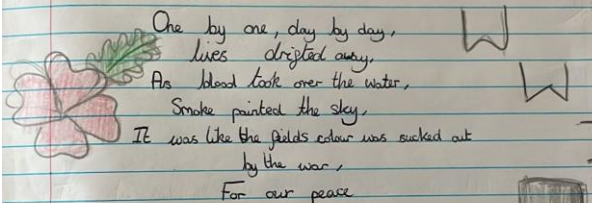 One by one, day by day,
lives drigted away,
As blood took over the water,
Smoke painted the sky,
It was like the fields colour was sucked out
by the war,
For our peace
W
W